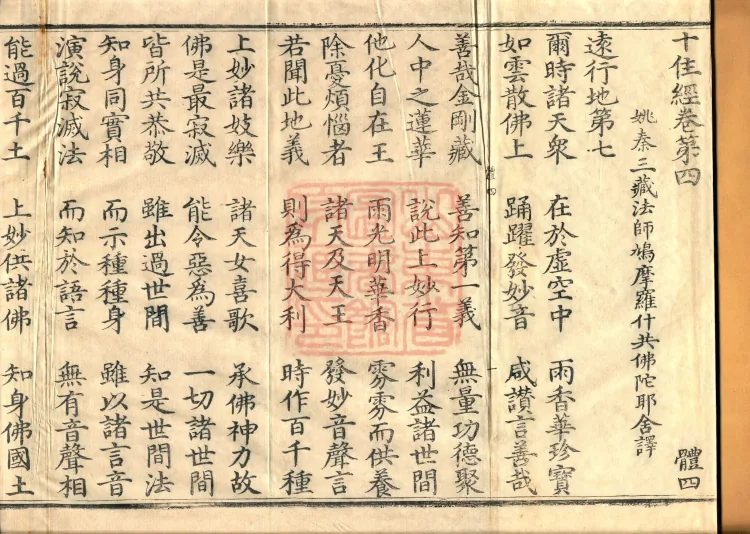 十住經卷第四 體四
姚秦三藏法師鳩摩羅什共佛陀耶舍譯
遠行地第七
爾時諸天衆 在於虛空中 雨香華珍寶
如雲散佛上 踊躍發妙音 咸讃言善哉
善哉金剛藏 善知第一義 無量功德聚
人中之蓮華 說此上妙行 利益諸世間
他化自在王 雨光明華香 雰雰而供養
除憂煩惱者 諸天及天王 發妙音聲言
若聞此地義 則爲得大利 時作百千種
上妙諸妓樂 諸天女喜歌 承佛神力故
佛是最寂滅 能令惡爲善 一切諸世間
皆所共恭敬 雖出過世間 知是世間法
知身同實相 而示種種身 雖以諸言音
演說寂滅法 而知於語言 無有音聲相
能過百千土 上妙供諸佛 知身佛國土